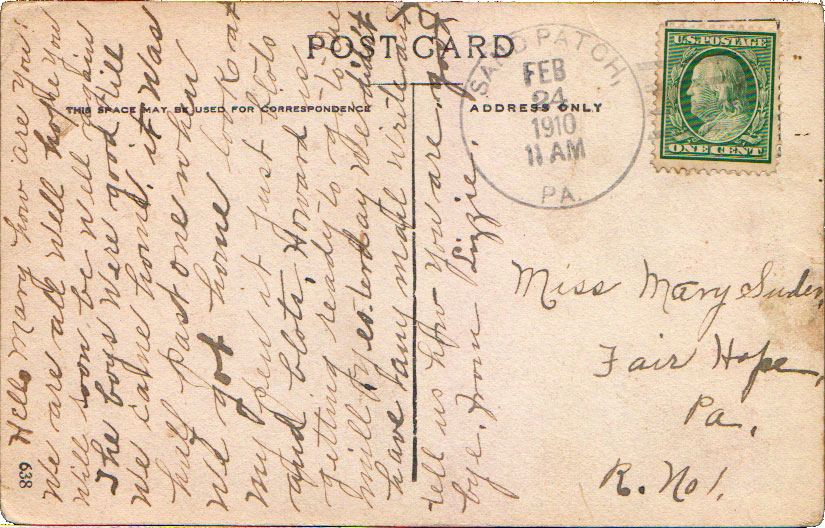 POST CARD
THIS SPACE MAY BE USED FOR CORRESPONDENCE
ADDRESS ONLY
SAND PATCH,
FEB
24
1910
11 AM
PA.
U.S. POSTAGE
ONE CENT
638
Hello Mary how are you.
We are all well hope you
will soon be well again
The boys were good till
we came home, it was
half past one when
we got home look at
my pen it just blots
and blots, Howard is
getting ready to go to the
mill yesterday we didn't
have any mail write and
tell us how you are. good
bye. from Lizzie.
Miss Mary
Fair Hope,
Pa,
R. No 1.